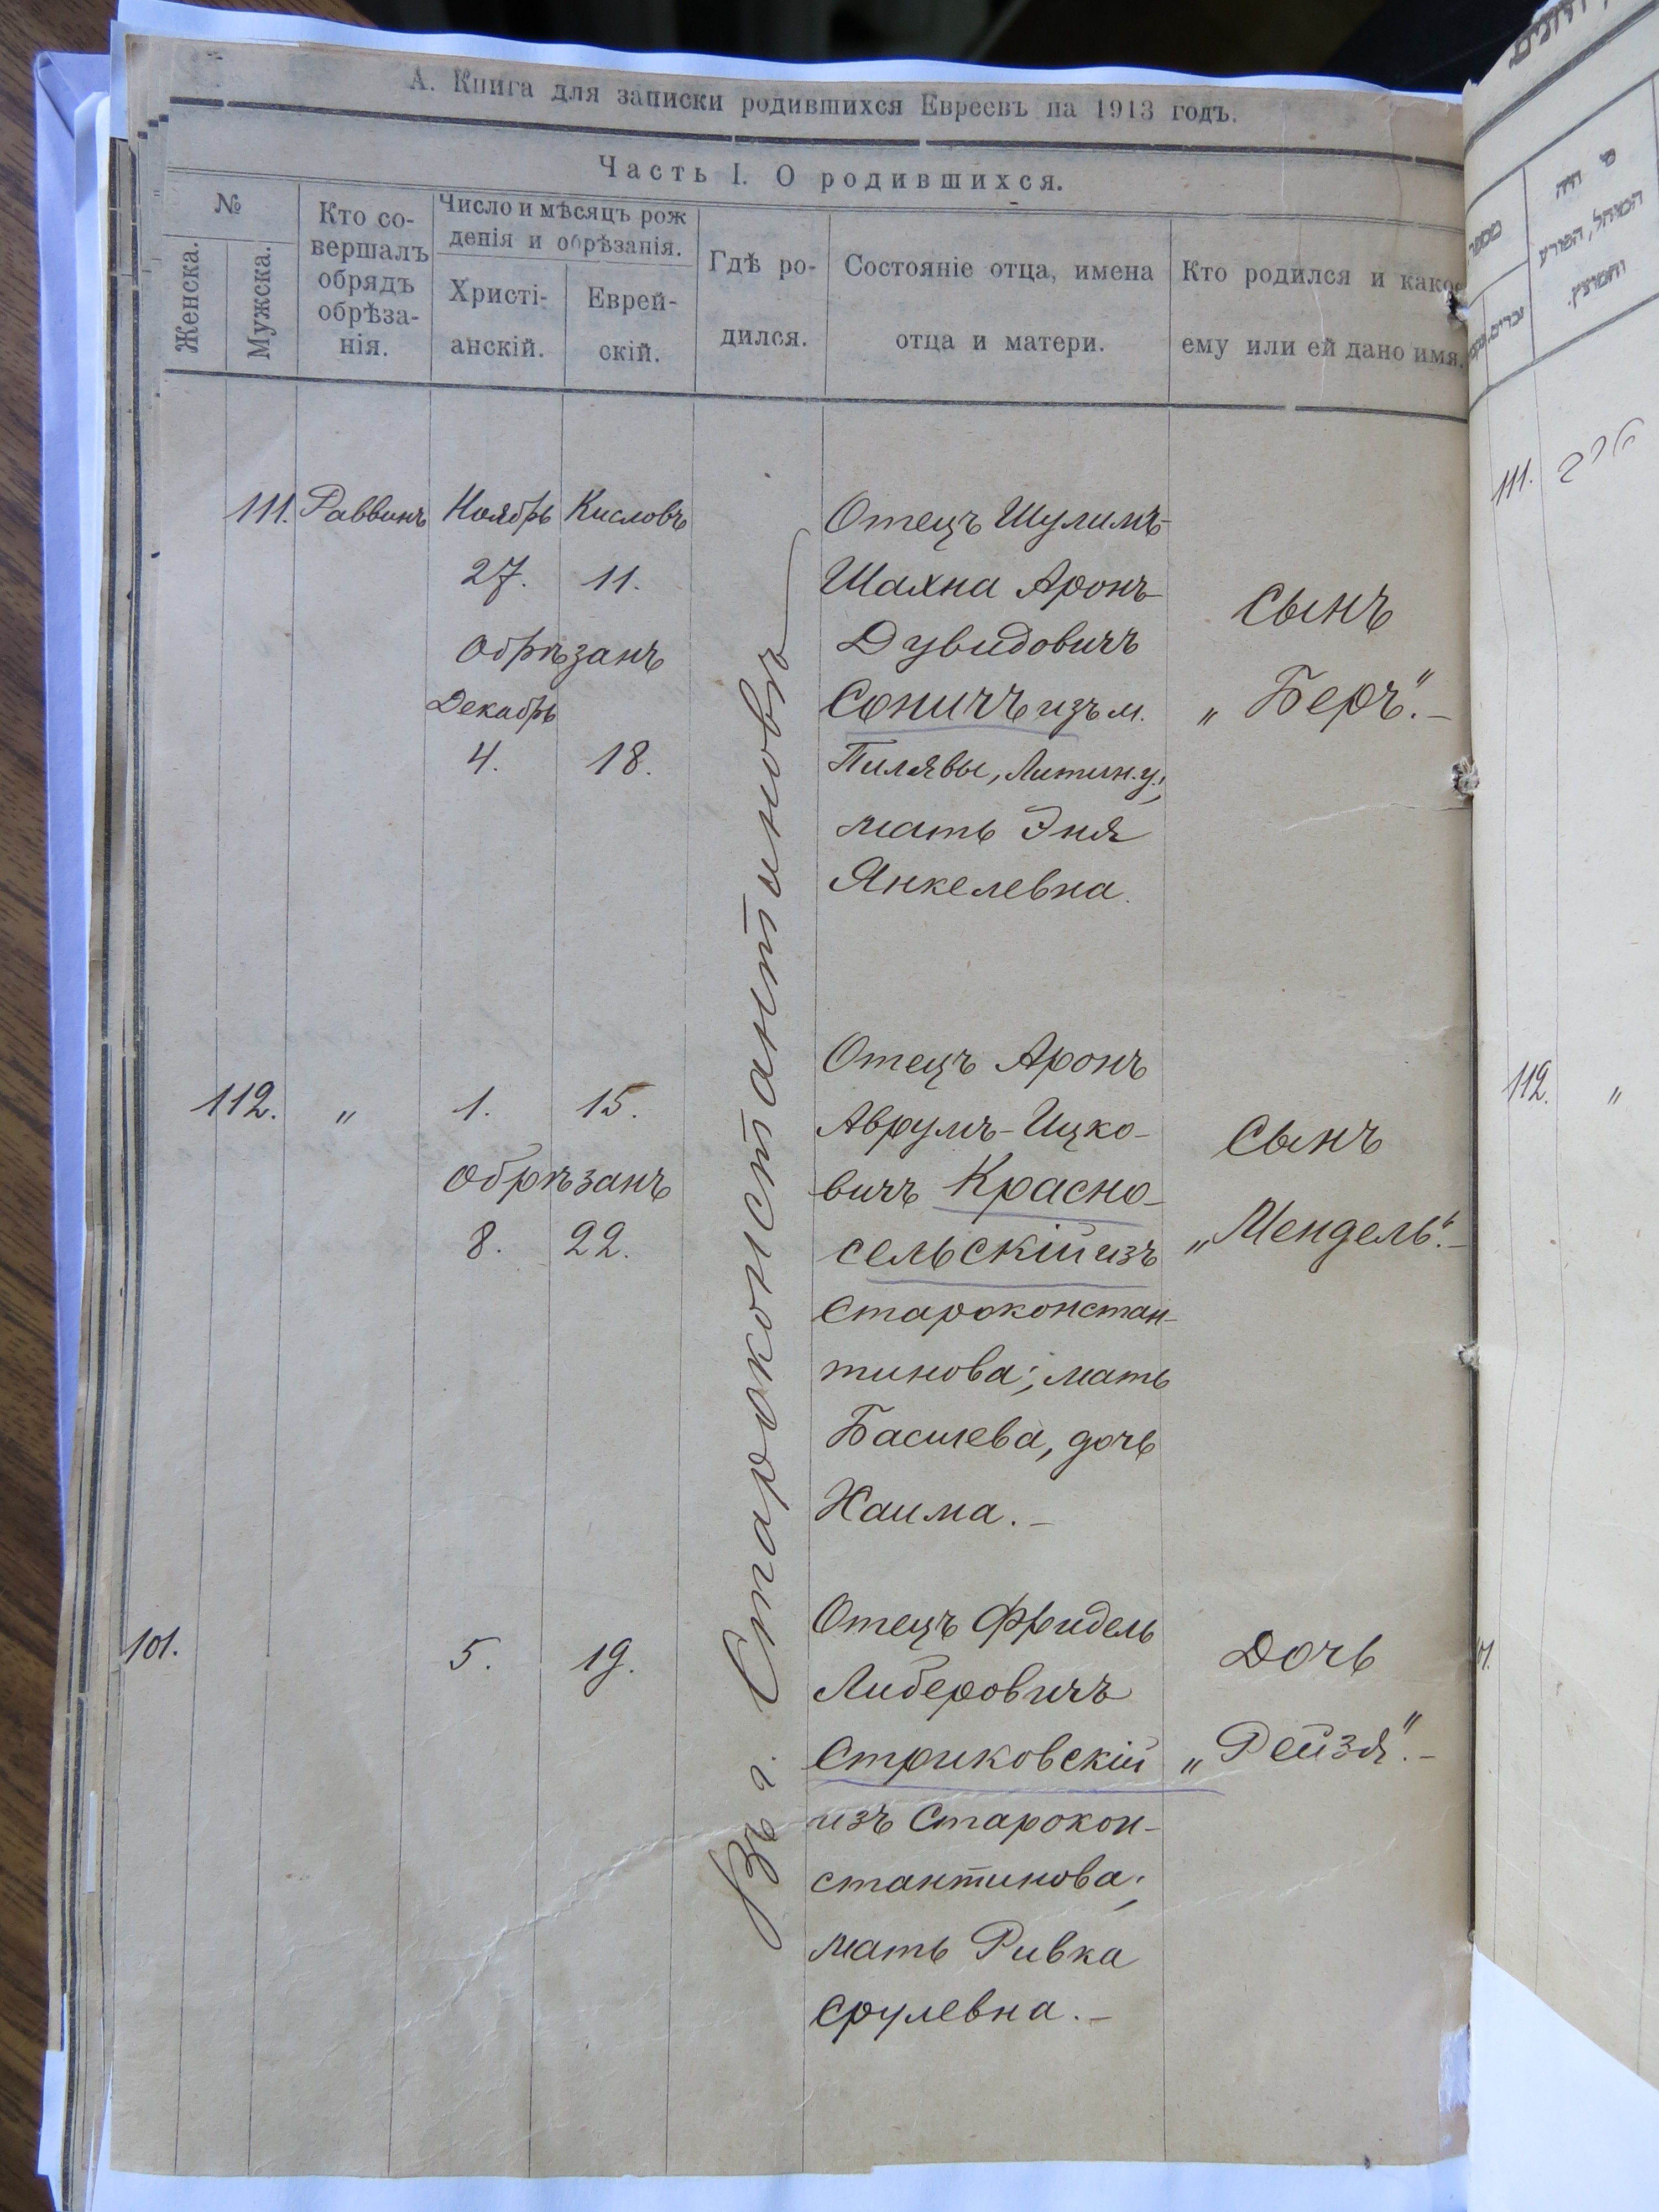 А. Книга для записки родившихся Евреевъ на 1913 годъ.
Часть I. О родившихся.
№
Женска.
Мужска.
Кто со-
вершалъ
обрядъ
обрѣза-
нія.
Число и мѣсяцъ рож
денія и обрѣзанія.
Христі-
анскій.
Еврей-
скій.
Гдѣ ро-
дился.
Состояніе отца, имена
отца и матери.
Кто родился и какое
ему или ей дано имя.
111. Раввинъ Ноябрь Кисловъ
27. 11.
Обрѣзанъ
Декабрь
4. 18.
Отецъ Шулимъ-
Шахна Аронъ-
Дувидовичъ
Соничъ изъ м.
Пилявы, Литин. у.;
мать Эня
Янкелевна.
Сынъ
„Беръ“.-
Въ г. Староконстантиновѣ
112. „ 1. 15.
Обрѣзанъ
8. 22.
Отецъ Аронъ
Аврумъ-Ицко-
вичъ Красно-
сельскій изъ
Староконстан-
тинова; мать
Басшева, дочь
Хаима.-
Сынъ
„Мендель“.-
101. 5. 19.
Отецъ Фридель
Либеровичъ
Стриковскій
изъ Старокон-
стантинова;
мать Ривка
Срулевна.-
Дочь
„Рейзя“.-
מספר
זכרים
מי היה
המוהל, הפורע
והמוצץ.
111. הרב
112. „